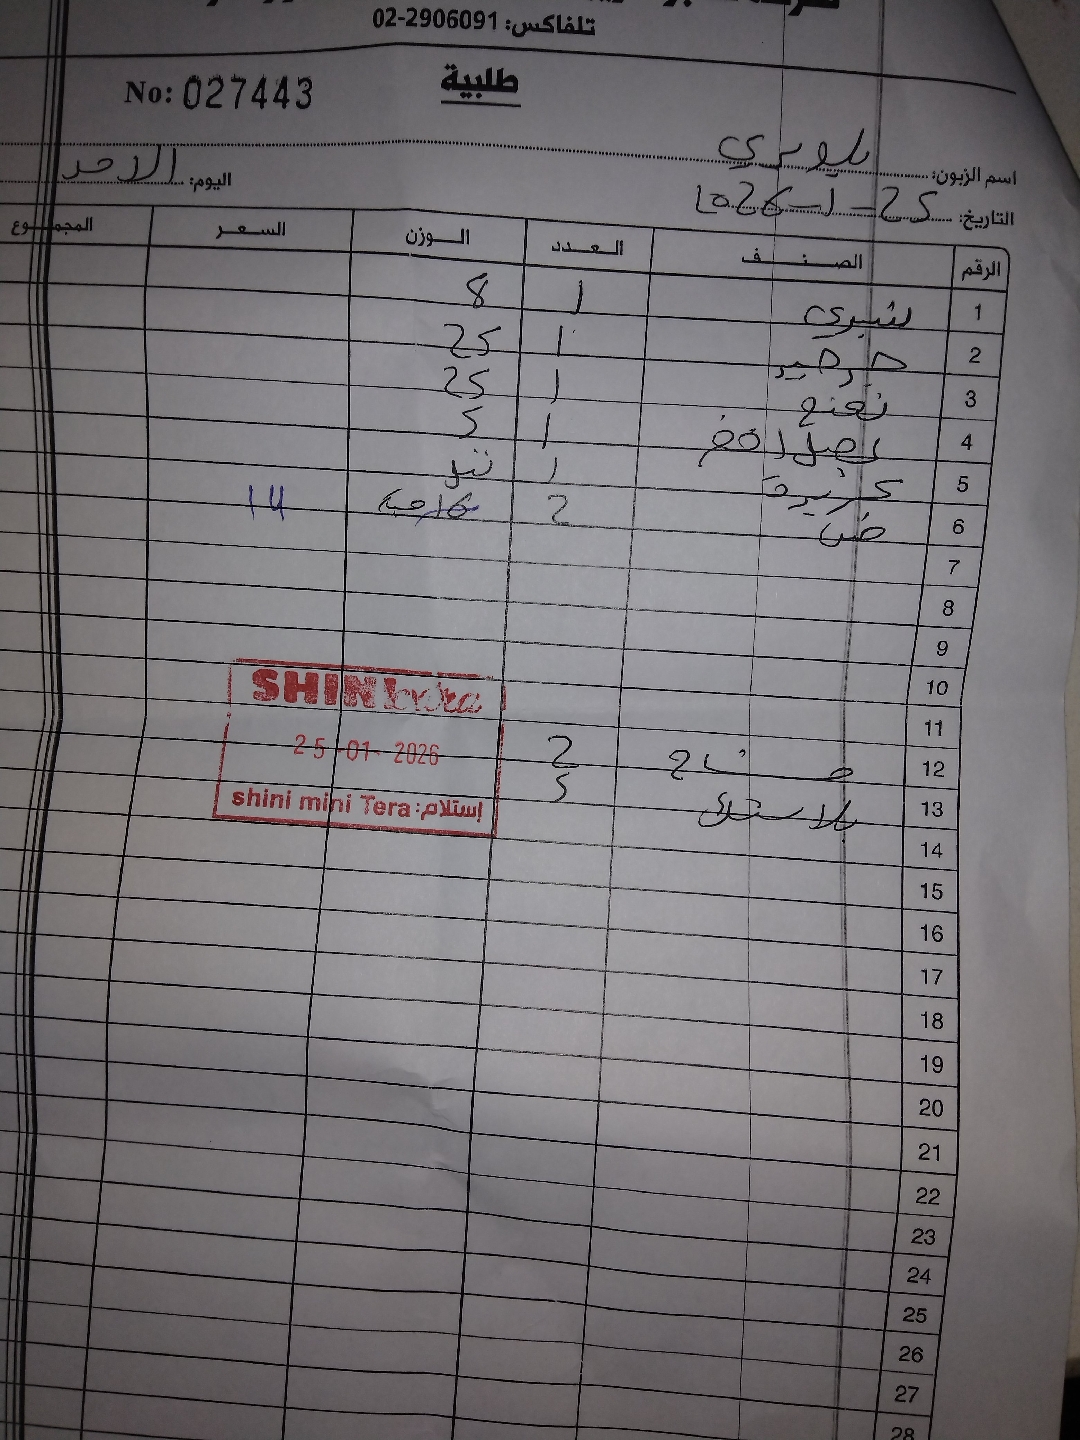 تلفاكس: 02-2906091
طلبية
No: 027443
اسم الزبون:
اليوم: الاحد
التاريخ: 25-1-2026
الرقم الصنف العدد الوزن السعر المجموع
1 شيري 1 8
2 جرجير 1 25
3 نعنع 1 25
4 بصل اخضر 1 5
5 كزبرة 1
6 خس 2 14
7
8
9
10
11
12 2
13 بلاستيك 5
14
15
16
17
18
19
20
21
22
23
24
25
26
27
28
SHINI extra
25-01-2026
إستلام: shini mini Tera